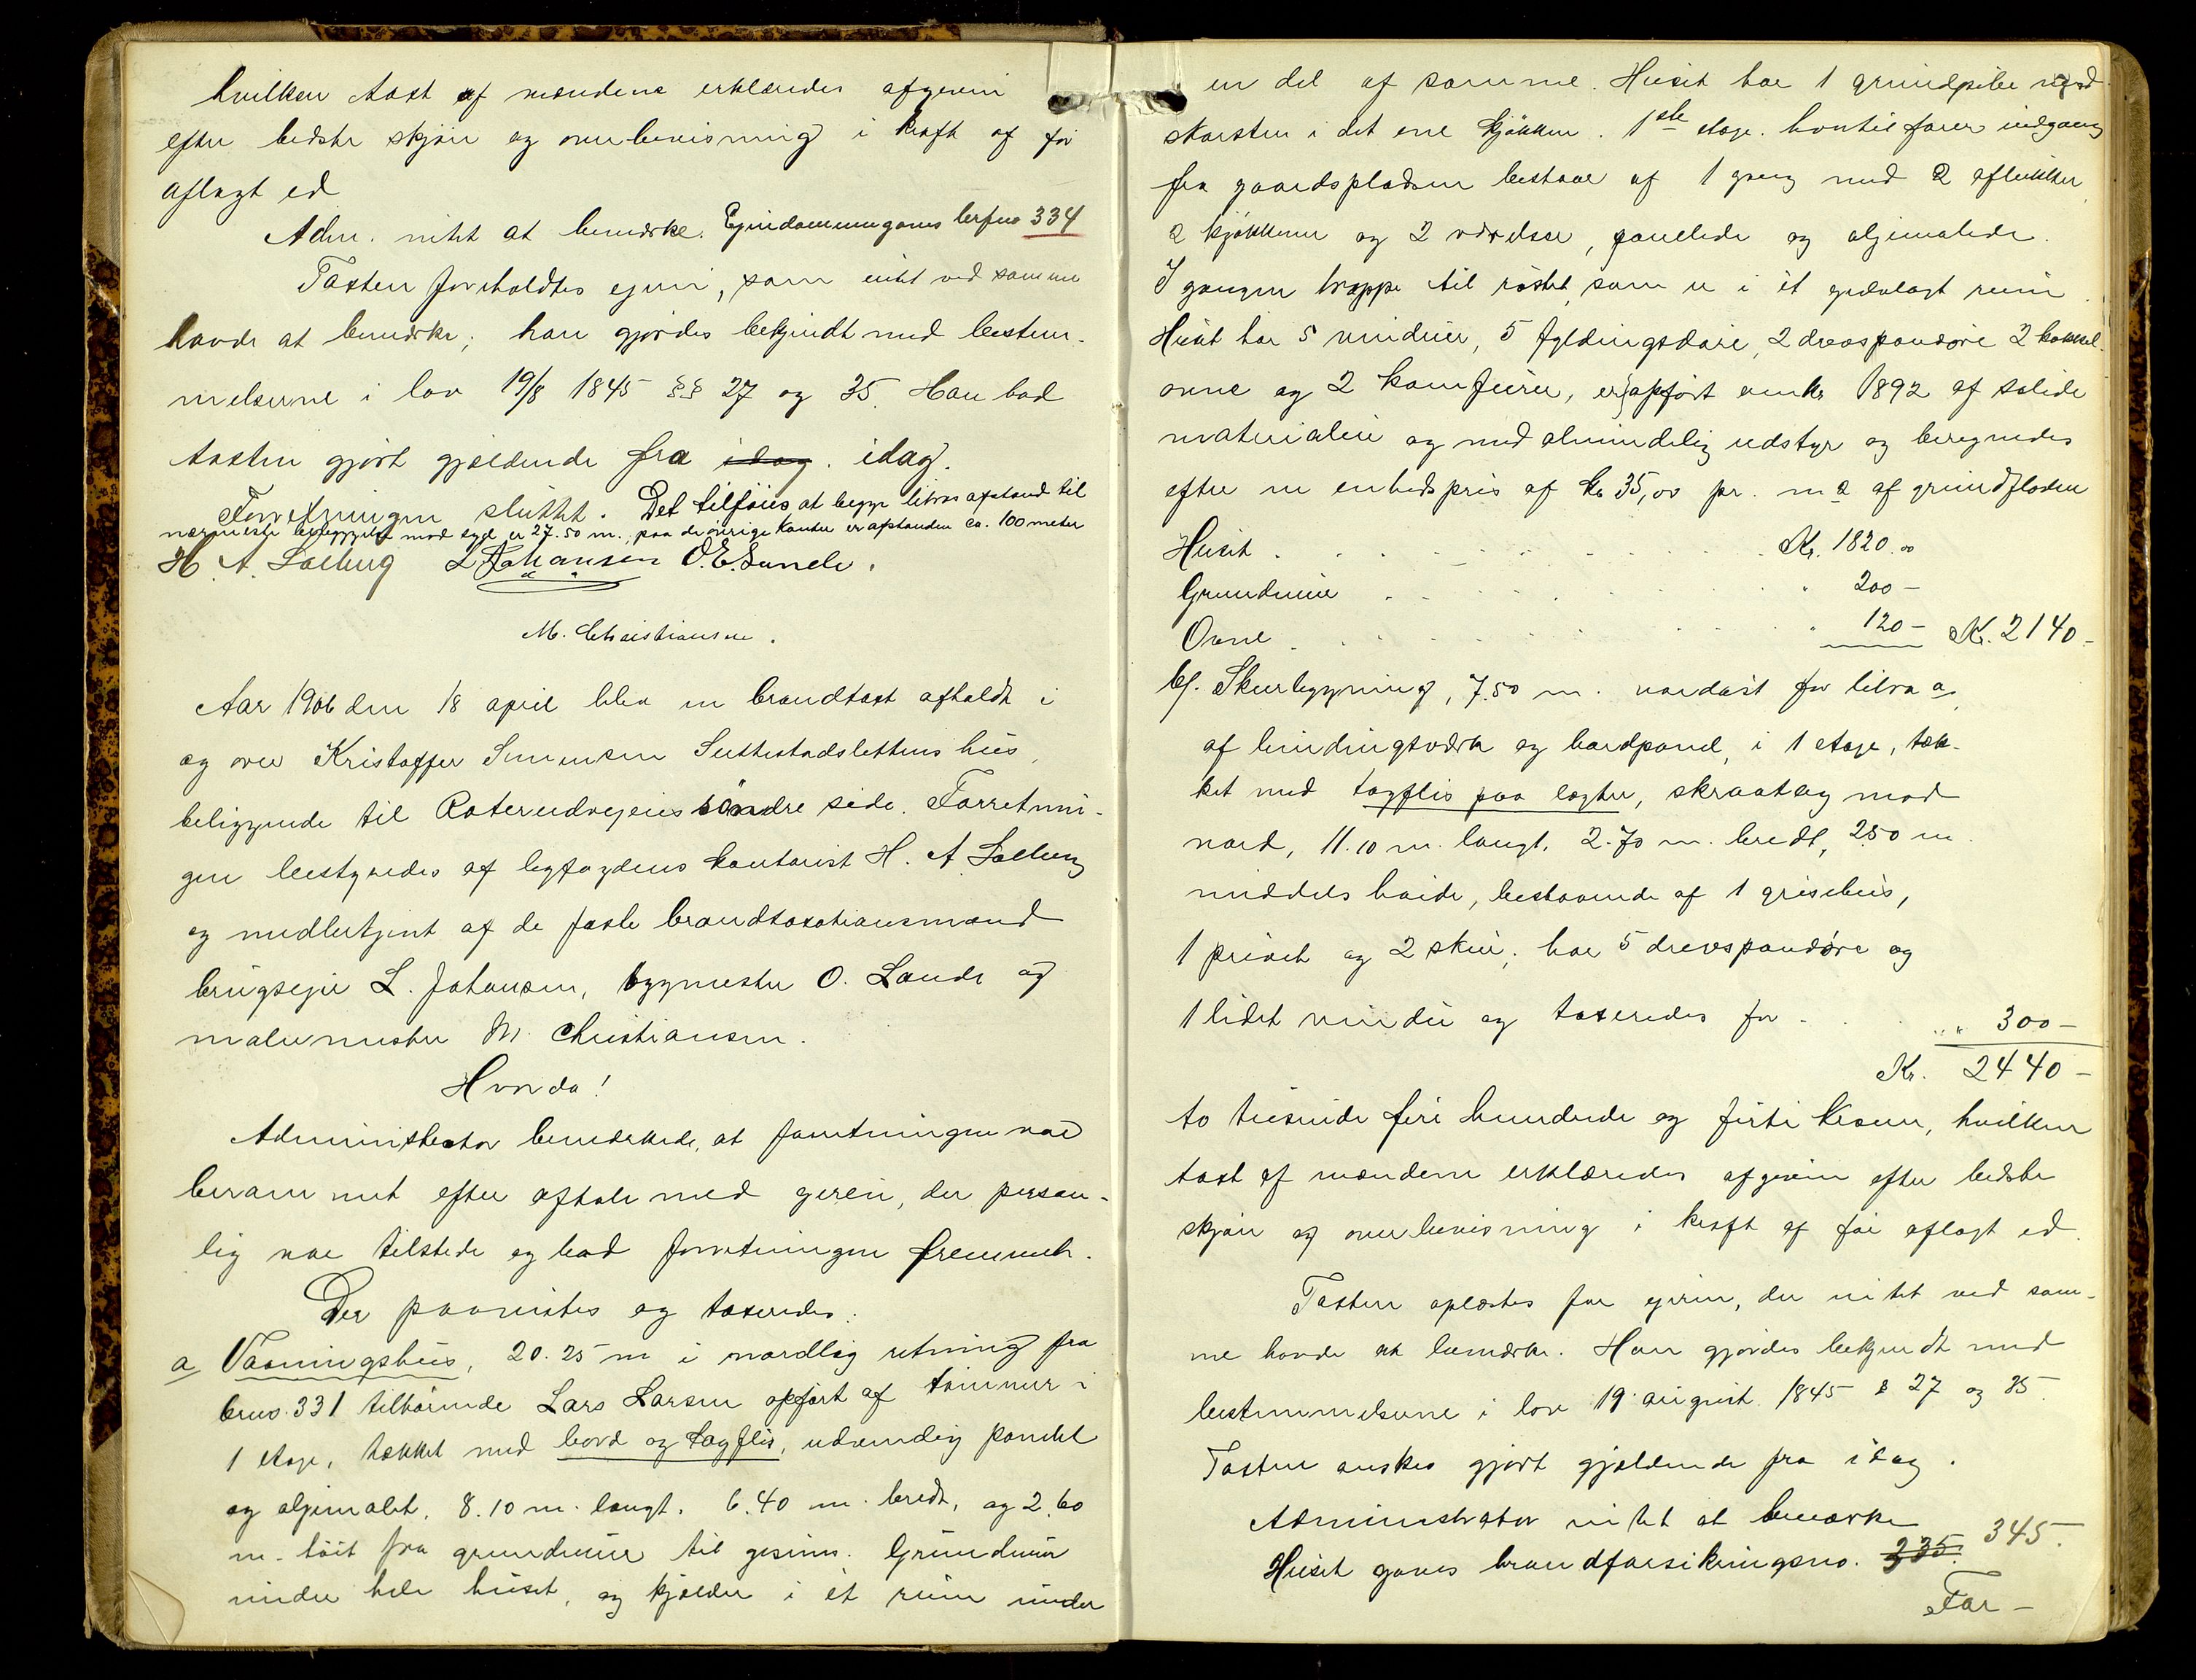 hvilken taxt af mændene erklæredes afgiven
efter bedste skjøn og overbevisning i kraft af før
aflagt ed
Adm. intet at bemærke. Ejendommen gaves brfno 334
Taxten foreholdtes ejeren, som intet ved samme
havde at bemærke; han gjordes bekjendt med bestem-
melserne i lov 19/8 1845 §§ 27 og 35. Han bad
taxten gjort gjældende fra idag. idag.
Forretningen sluttet. Det tilføies at begge litras afstand til
nærmeste bebyggelse mod syd er 27.50 m., paa de øvrige kanter er afstanden ca. 100 meter
H. A. Solberg L Johansen O. E. Sunde.
M. Christiansen.
Aar 1906 den 18 april blev en brandtaxt afholdt i
og over Kristoffer Simensen Suttestadslettens hus,
beliggende til Roterudvejens søndre side. Forretnin-
gen bestyredes af lensfogdens kontorist H. A Solberg
og medbetjent af de faste brandtaxationsmænd
brugseier L. Johansen, bygmester O. Sande og
malermester M. Christiansen.
Hvorda!
Administrator bemærkede, at forretningen var
berammet efter aftale med eieren, der person-
lig var tilstede og bad forretningen fremmet.
Der paavistes og taxeredes:
a Vaaningshus, 20.25 m i nordlig retning fra
brno. 331 tilhørende Lars Larsen opført af tømmer i
1 etage, tækket med bord og tagflis, udvendig panelet
og oljemalet. 8.10 m. langt. 6.40 m. bredt, og 2.60
m. høit fra grundmur til gesims. Grundmur
under hele huset, og kjælder i et rum under
en del af samme. Huset har 1 grundpibe med
skorsten i det ene kjøkken. 1ste etage. hvortil fører indgang
fra gaardspladsen bestaar af 1 gang med 2 aflukker,
2 kjøkkener og 2 værelser, panelede og oljemalede.
I gangen trappe til røstet, som er i et gulvlagt rum.
Huset har 5 vinduer, 5 fyldingsdøre, 2 drevspandøre 2 kakkel-
ovne og 2 komfurer, er opført omkr 1892 af solide
materialier og med almindelig udstyr og beregnedes
efter en enhedspris af kr 35,00 pr. m2 af grundfladen
Huset . . . . . . . Kr. 1820.00
Grundmur . . . . . . . " 200 -
Ovne . . . . . . . " 120 - Kr. 2140 -
b/. Skurbygning, 7.50 m. nordøst for litra a,
af bindingsværk og bordpanel, i 1 etage, tæk-
ket med tagflis paa lægter, skraatag mod
nord, 11.10 m. langt. 2.70 m. bredt, 2.50 m.
middels høide, bestaaende af 1 grisehus,
1 privet og 2 skur; har 5 drevspandøre og
1 lidet vindu og taxeredes for . . . " " 300 -
Kr. 2440 -
to tusinde fire hundrede og firti kroner, hvilken
taxt af mændene erklæredes afgiven efter bedste
skjøn og overbevisning i kraft af før aflagt ed.
Taxten oplæstes for ejeren, der intet ved sam-
me havde at bemærke. Han gjordes bekjendt med
bestemmelserne i lov 19 august 1845 § 27 og 35.
Taxten ønskes gjort gjældende fra idag.
Administrator intet at bemærke
Huset gaves brandforsikringsno. 335. 345.
For -